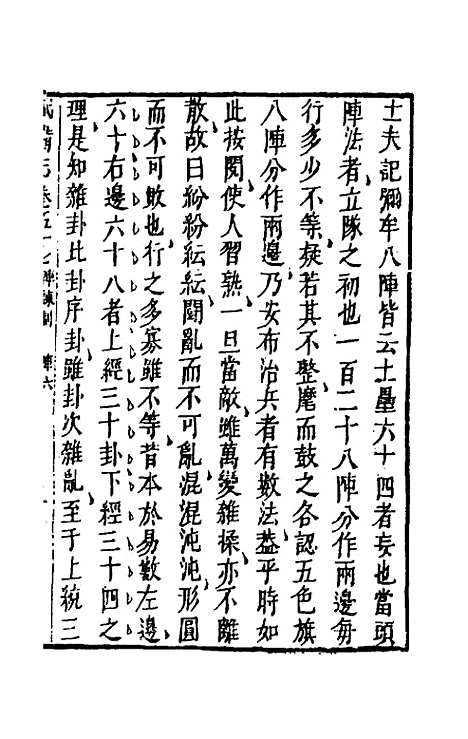 士夫記彌牟八陣皆云土壘六十四者妄也當頭
陣法者立隊之初也一百二十八陣分作兩邊每
行多少不等疑若其不整麾而鼓之各認五色旗
八陣分作兩邊乃安布治兵者有數法葢平時如
此按閱使人習熟一旦當敵雖萬變雜揉亦不離
散故曰紛紛紜紜鬬亂而不可亂混混沌沌形圓
而不可敗也行之多寡雖不等昔本於易數左邊
六十右邊六十八者上經三十卦下經三十四之
理是知雜卦比卦序卦雖卦次雜亂至于上統三
武備志卷五十七 陣練制 陣六